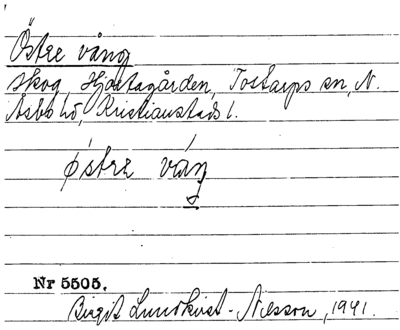 Östre vång
skog, Hjortagården, Tostarps sn, N.
Åsbo hd, Kristianstads l.
østre váŋ
Nr 5505.
Birgit Lundkvist-Nilsson, 1941.